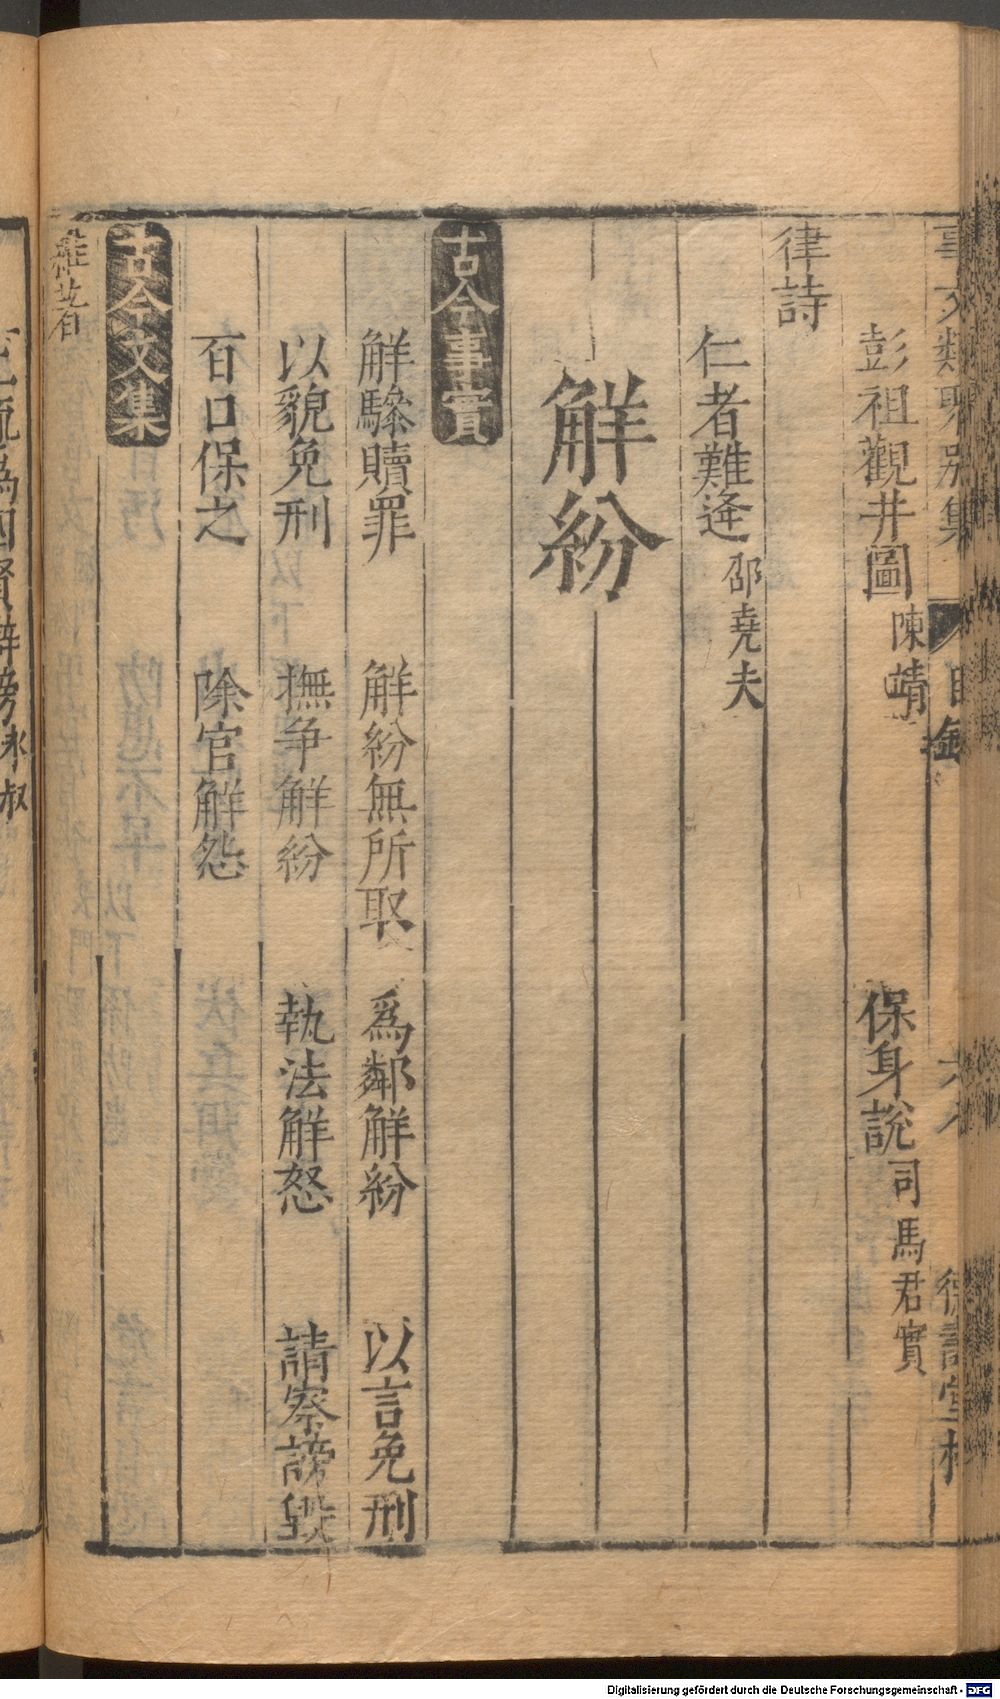 事文類聚別集 目錄 六 德壽堂梓
彭祖觀井圖 陳靖 保身說 司馬君實
律詩
仁者難逢 邵堯夫
解紛
古今事實
解驂贖罪 解紛無所取 為鄰解紛 以言免刑
以貌免刑 撫爭解紛 執法解怒 請察謗毀
百口保之 除官解怨
古今文集
雜著
Digitalisierung gefördert durch die Deutsche Forschungsgemeinschaft - DFG